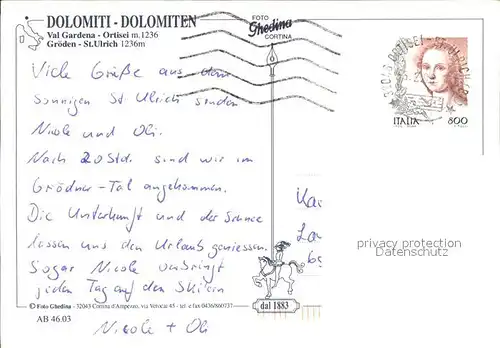 DOLOMITI - DOLOMITEN
Val Gardena - Ortisei m.1236
Gröden - St.Ulrich 1236m
FOTO
Ghedina
CORTINA
ORTISEI - ST. ULRICH
ITALIA 800
Viele Grüße aus dem
sonnigen St Ulrich senden
Nicole und Oli.
Nach 20 Std. sind wir im
Grödner-Tal angekommen.
Die Unterkunft und der Schnee
lassen uns den Urlaub geniessen.
Sogar Nicole verbringt
jeden Tag auf den Skiern
Nicole + Oli
privacy protection
Datenschutz
dal 1883
© Foto Ghedina - 32043 Cortina d'Ampezzo, via Verocai 45 - tel. e fax 0436/860737
AB 46.03